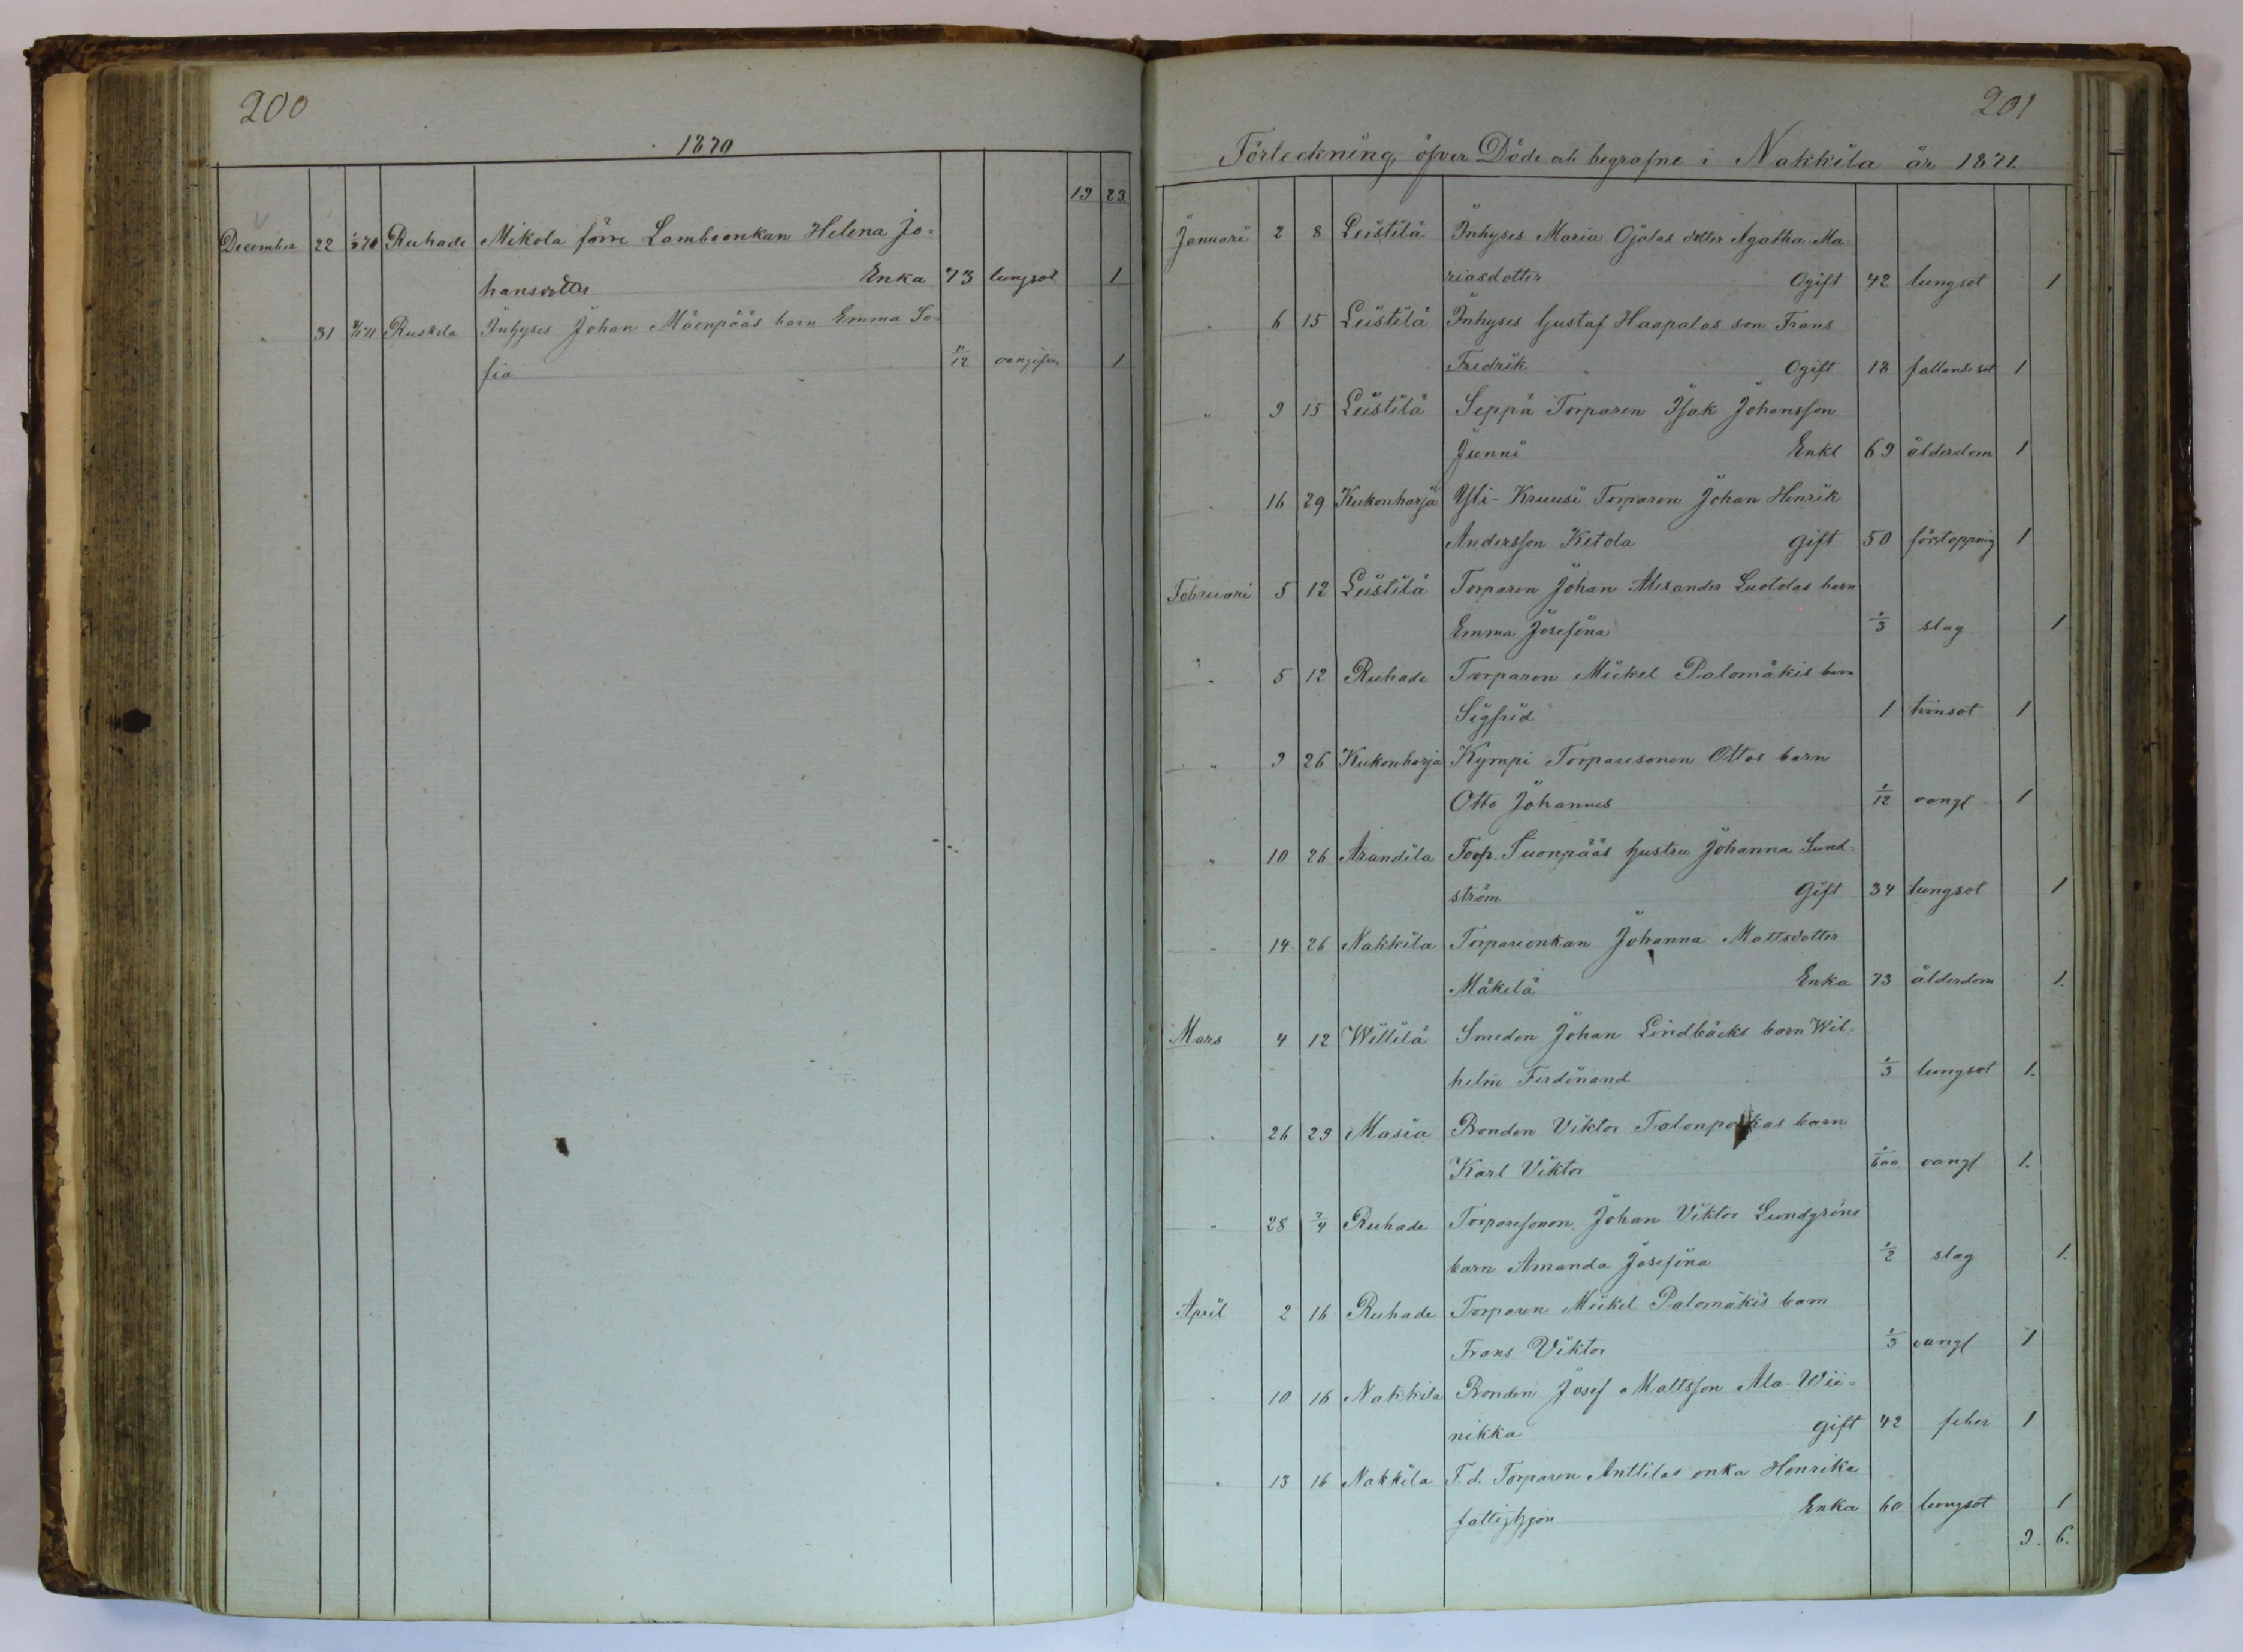 200
1870
19 23
December 22 Ruhade Mikola förre Lamboenkan Helena Jo=
hansdotter Enka 73 lungsot 1
" 31 Ruskela Inhyses Johan Mäenpääs barn Emma So=
fia 11/12 oangifven 1
201
Förteckning öfver Döde och begrafne i Nakkila år 1871.
Januari 2 8 Leistilä Inhyses Maria Ojalas dotter Agatha Ma
riasdotter Ogift 42 lungsot 1
" 6 15 Leistilä Inhyses Gustaf Haapalas son Frans
Fredrik Ogift 18 fallandesot 1
" 9 15 Leistilä Seppä Torparen Isak Johansson
Junni Enkl 69 ålderdom 1
" 16 29 Kukonharja Yli-Kruusi Torparen Johan Henrik
Andersson Ketola gift 50 förstoppning 1
Februari 5 12 Leistilä Torparen Johan Alexander Luotolas barn
Emma Josefina 1/3 slag 1
" 5 12 Ruhade Torparen Mickel Palomäkis barn
Sigfrid 1 tvinsot 1
" 9 26 Kukonharja Kympi Torparesonen Ottos barn
Otto Johannes 1/12 oangf 1
" 10 26 Arandila Torp. Suonpääs hustru Johanna Sund=
ström Gift 34 lungsot 1
" 14 26 Nakkila Torpareenkan Johanna Mattsdotter
Mäkelä Enka 73 ålderdom 1.
Mars 4 12 Willilä Smeden Johan Lindbäcks barn Wil=
helm Ferdinand 1/3 lungsot 1.
" 26 29 Masia Bonden Viktor Talonpoikas barn
Karl Viktor oangf 1.
" 28 2/4 Ruhade Torparesonen Johan Viktor Lundgrens
barn Amanda Josefina 1/2 slag 1.
April 2 16 Ruhade Torparen Mickel Palomäkis barn
Frans Viktor 1/3 oangf 1
" 10 16 Nakkila Bonden Josef Mattsson Ala-Wii=
nikka gift 42 feber 1
" 13 16 Nakkila F.d. Torparen Anttilas enka Henrika
fattighjon Enka 60 lungsot 1
9. 6.